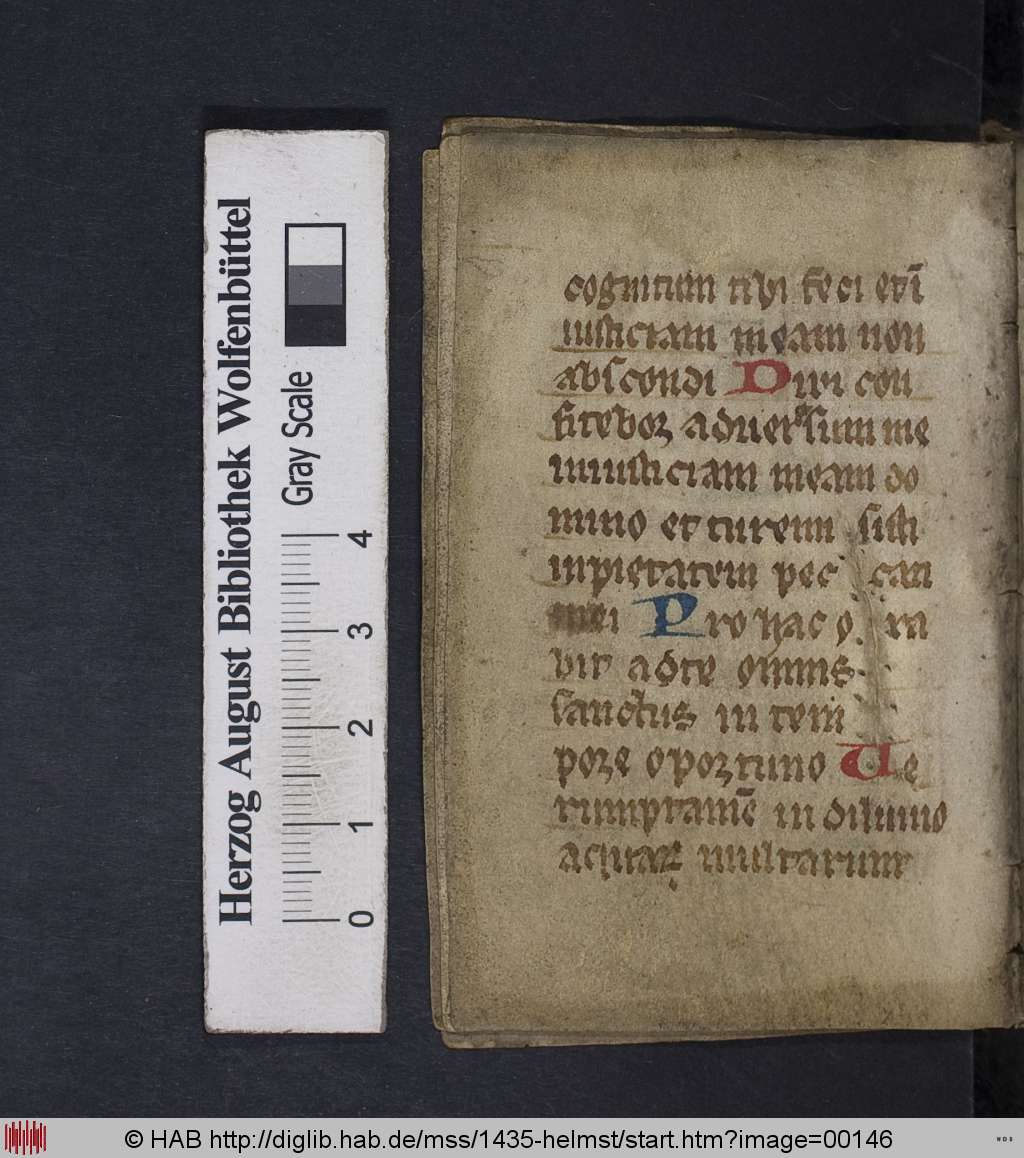 Herzog August Bibliothek Wolfenbüttel
Gray Scale
0 1 2 3 4
cognitum tibi feci et ī
iusticiam meam non
abscondi Dixi con
fitebor aduersum me
iniusticiam meam do
mino et tu remi sisti
inpietatem pec can
mei Pro hac o ra
bit ad te omnis
sanctus in tem
pore oportuno Ve
rumptamē in diluuio
aquarꝝ multarum
© HAB http://diglib.hab.de/mss/1435-helmst/start.htm?image=00146